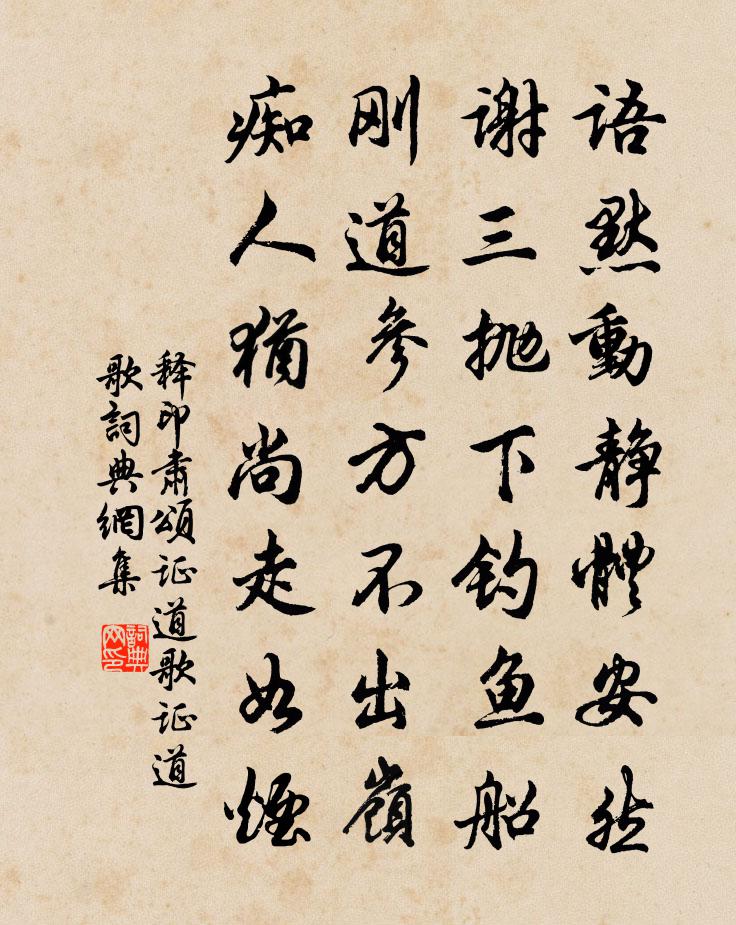 语默動静體安然
谢三抛下钓鱼船
刚道参方不出嶺
痴人猶尚走如煙
释印肃颂证道歌证道
歌詞典網集
詞典
网印